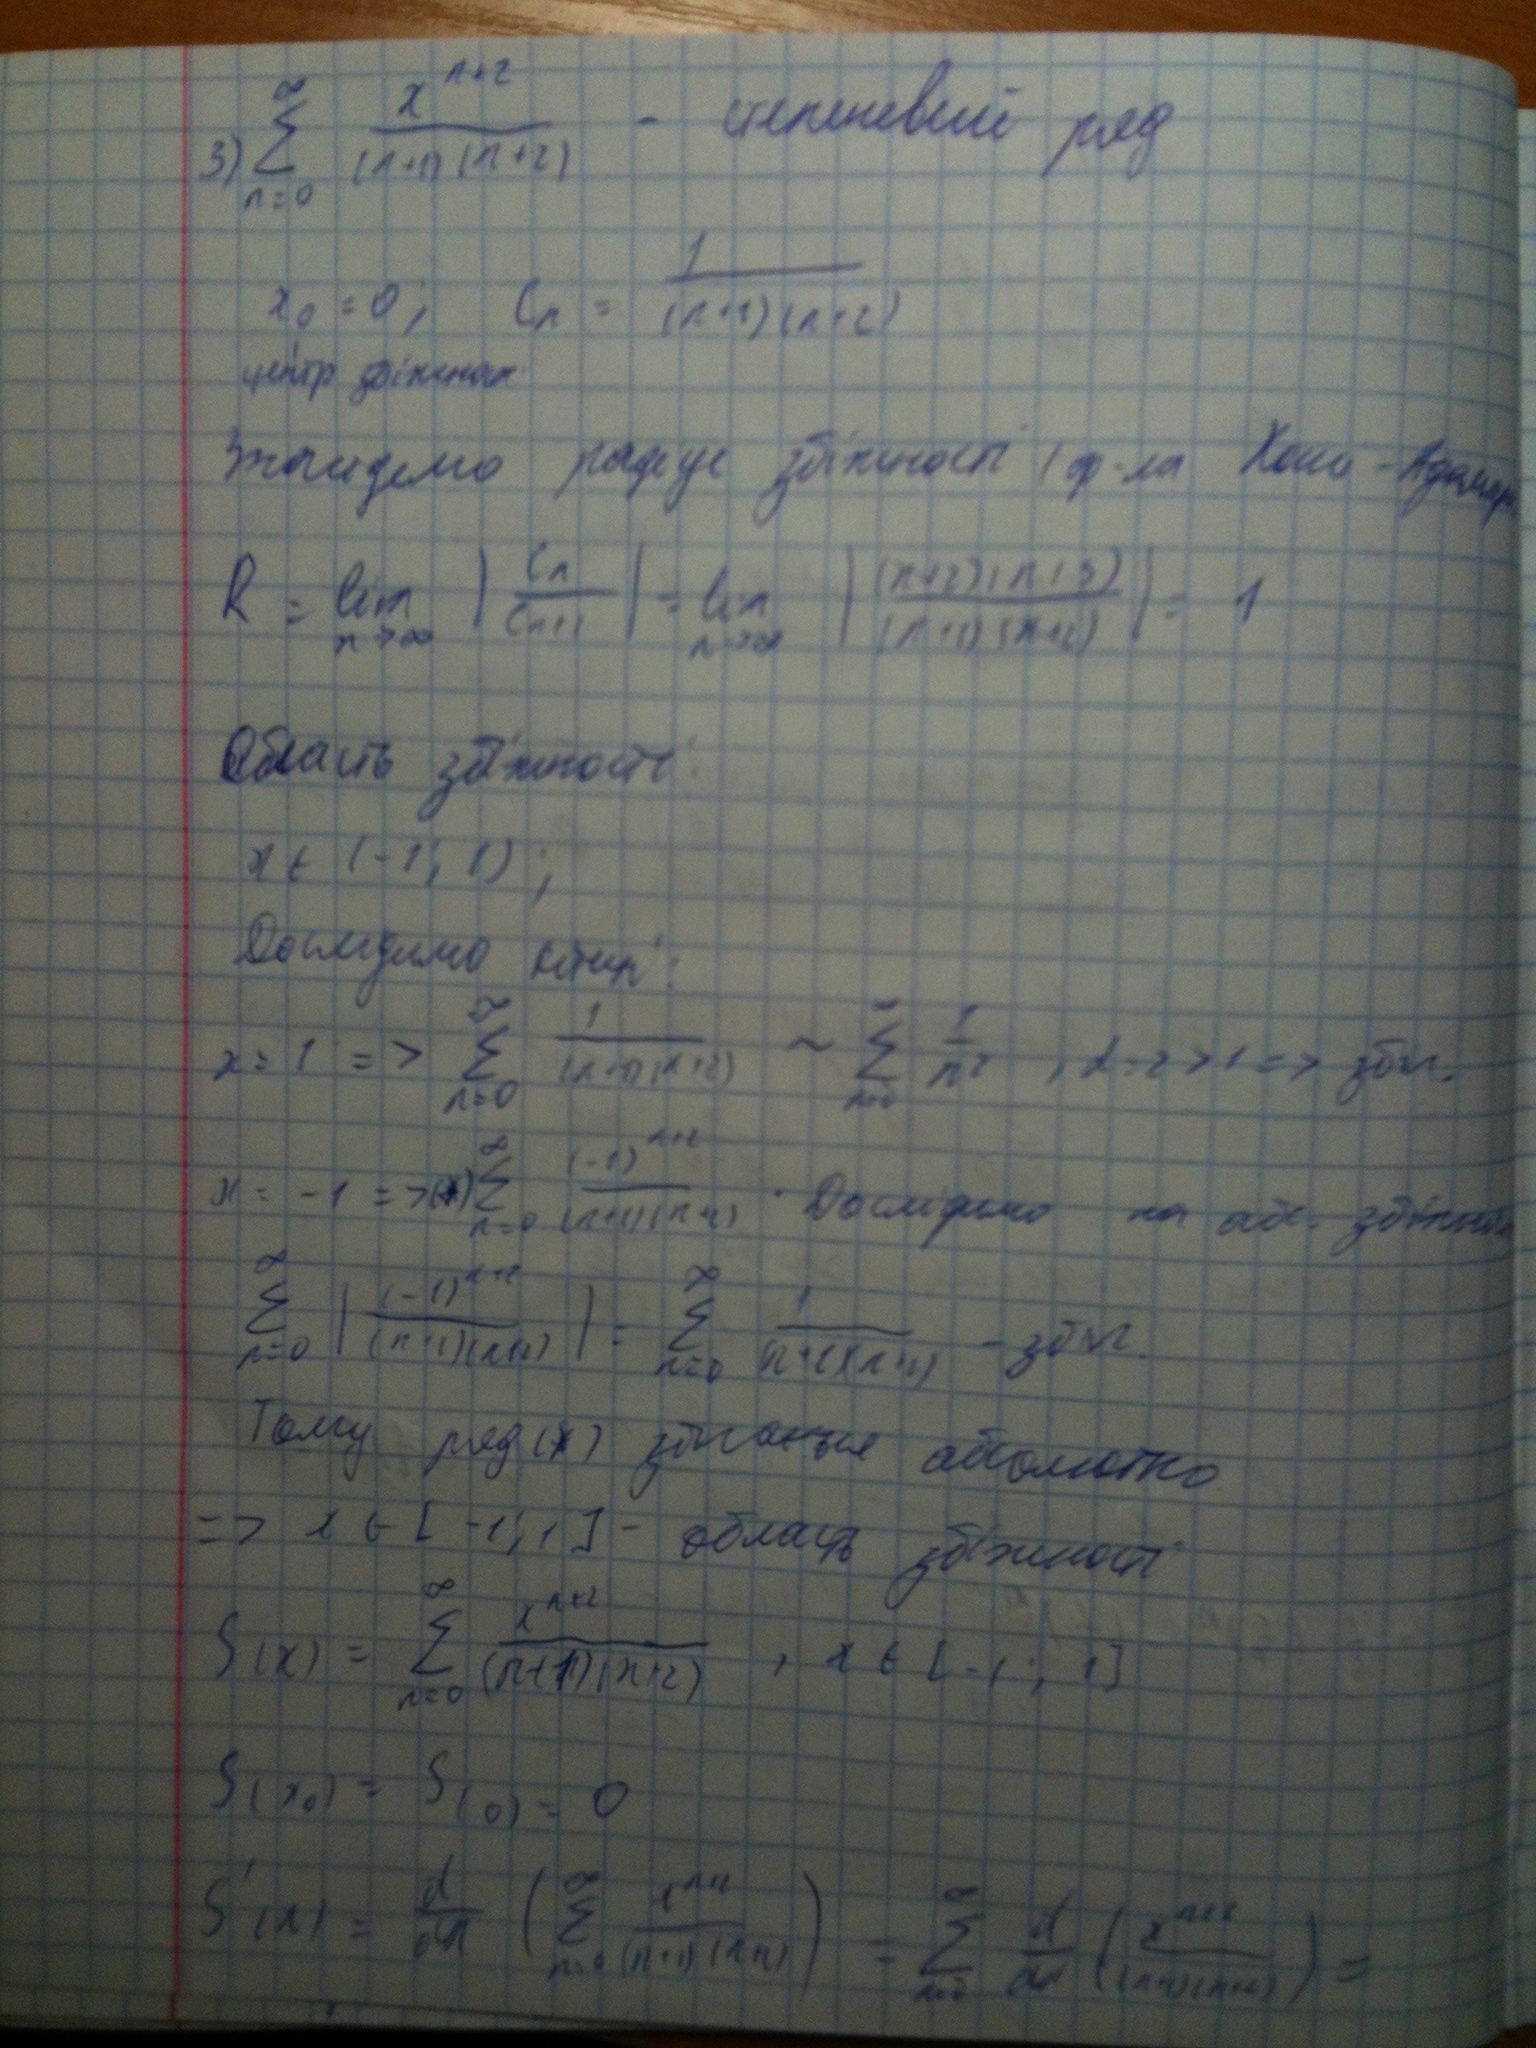 3) ∑_{n=0}^{∞} x^{n+2}/((n+1)(n+2)) - степеневий ряд
x₀ = 0; Cₙ = 1/((n+1)(n+2))
центр
Знайдемо радіус збіжності (ф-ла Коши-Адамар
R = lim_{n→∞} |Cₙ/Cₙ₊₁| = lim_{n→∞} |((n+2)(n+3))/((n+1)(n+2))| = 1
Область збіжності:
x ∈ (-1; 1);
Дослідимо кінці:
x = 1 => ∑_{n=0}^{∞} 1/((n+1)(n+2)) ~ ∑_{n=0}^{∞} 1/n², α=2>1 => збіг.
x = -1 => (*) ∑_{n=0}^{∞} (-1)^{n+2}/((n+1)(n+2)). Дослідимо на абс. збіжність
∑_{n=0}^{∞} |(-1)^{n+2}/((n+1)(n+2))| = ∑_{n=0}^{∞} 1/((n+1)(n+2)) - збіг.
Тому ряд (*) збігається абсолютно
=> x ∈ [-1; 1] - область збіжності
S(x) = ∑_{n=0}^{∞} x^{n+2}/((n+1)(n+2)), x ∈ [-1; 1]
S(x₀) = S(0) = 0
S'(x) = d/dx (∑_{n=0}^{∞} x^{n+2}/((n+1)(n+2))) = ∑_{n=0}^{∞} d/dx (x^{n+2}/((n+1)(n+2))) =